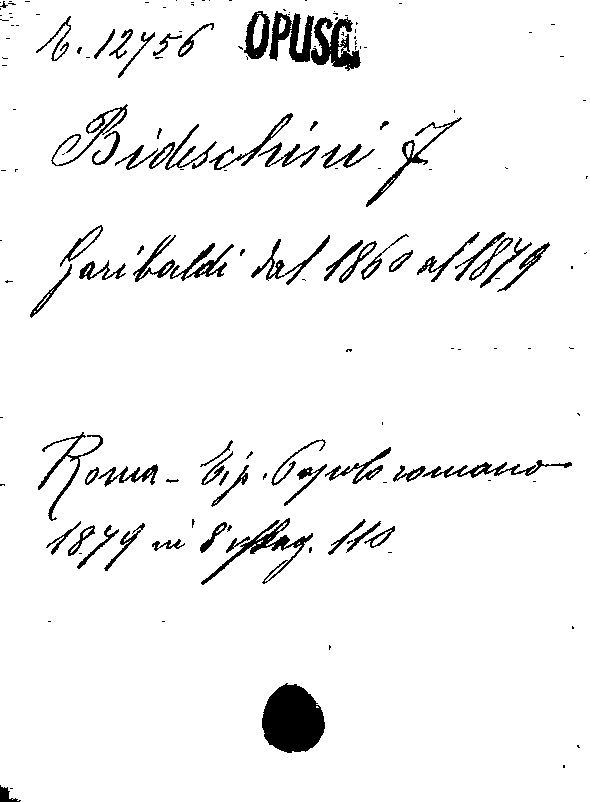 12756 OPUSC.
Bideschini F
Garibaldi dal 1860 al 1879
Roma - Tip. Popolo romano
1879 in 8° pag. 110